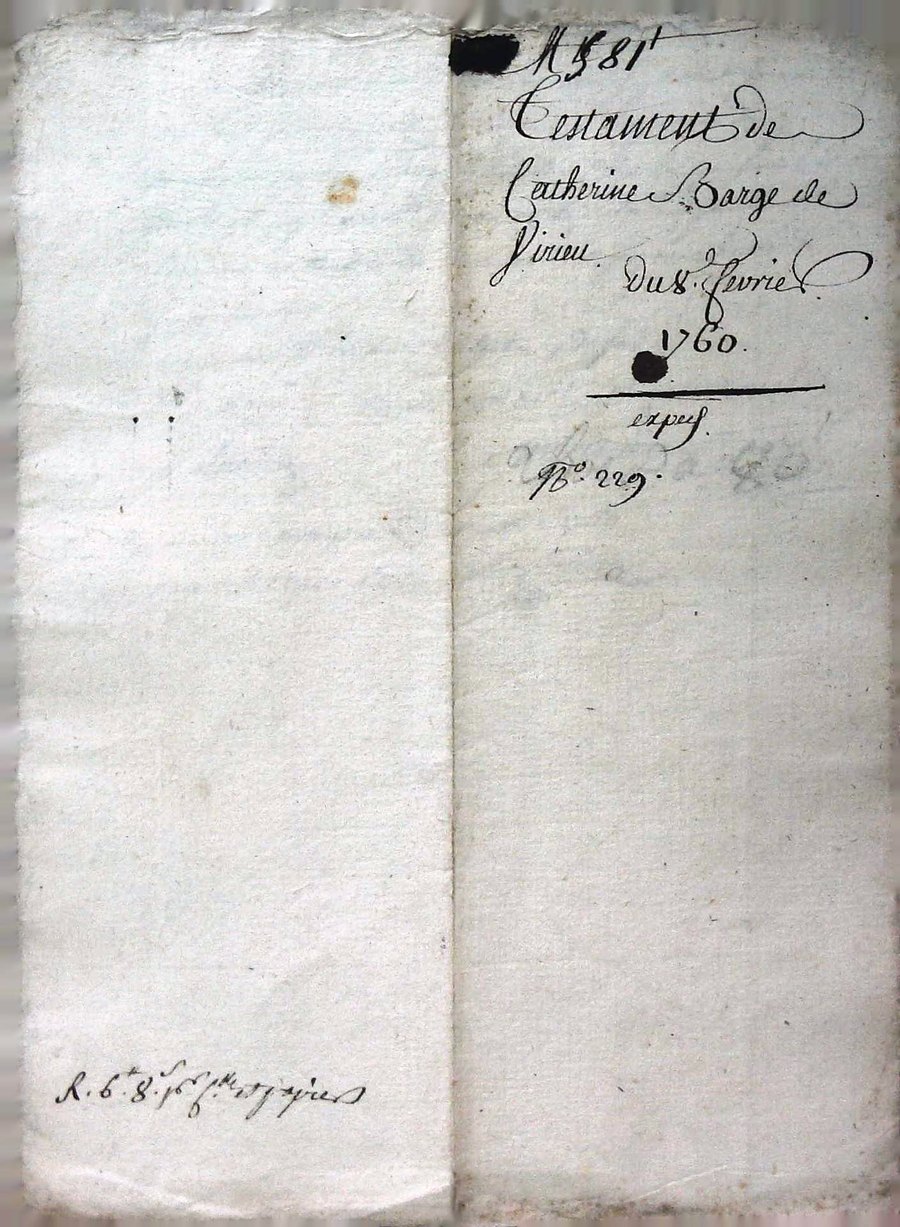 81
Testament de
Catherine Barge de
Virieu
Du 8. fevrier
1760.
expes.
N°. 229.
R. 6 8 papier